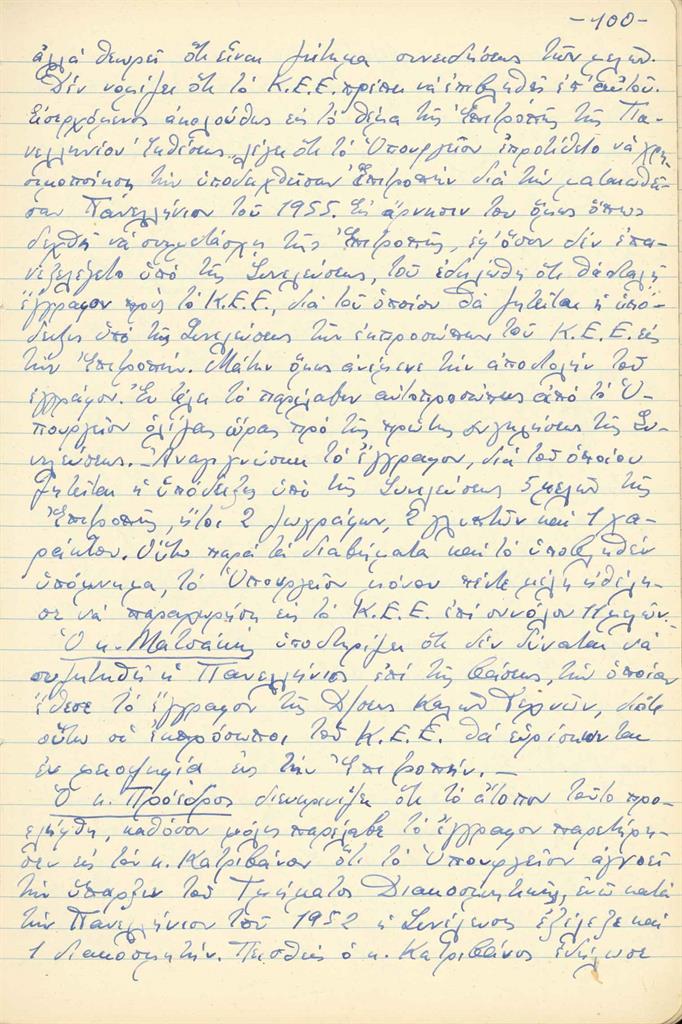 -100-
ἀλλά θεωρεῖ ὅτι εἶναι ζήτημα συνειδήσεως τῶν μελῶν.
Δέν νομίζει ὅτι τό Κ.Ε.Ε. πρέπει νά ἐπιβληθῇ ἐπ' αὐτοῦ.
Εἰσερχόμενος ἀκολούθως εἰς τό θέμα τῆς Ἐπιτροπῆς τῆς Πα-
νελληνίου Ἐκθέσεως, λέγει ὅτι τό Ὑπουργεῖον ἐπροτίθετο νά χρη-
σιμοποιήσῃ τήν ὑποδειχθεῖσαν Ἐπιτροπήν διά τήν ματαιωθεῖ-
σαν Πανελλήνιον τοῦ 1955. Εἰς ἄρνησίν του ὅμως ὅπως
δεχθῇ νά συμμετάσχῃ τῆς Ἐπιτροπῆς, ἐφ' ὅσον δέν ἐπα-
νεξελέγετο ὑπό τῆς Συνελεύσεως, τοῦ ἐδηλώθη ὅτι θά σταλῇ
ἔγγραφον πρός τό Κ.Ε.Ε., διά τοῦ ὁποίου θά ζητεῖται ἡ ὑπό-
δειξις ὑπό τῆς Συνελεύσεως τῶν ἐκπροσώπων τοῦ Κ.Ε.Ε. εἰς
τήν Ἐπιτροπήν. Μάτην ὅμως ἀνέμενε τήν ἀποστολήν τοῦ
ἐγγράφου. Ἐν τέλει τό παρέλαβεν αὐτοπροσώπως ἀπό τό Ὑ-
πουργεῖον ὀλίγας ὥρας πρό τῆς πρώτης συγκλήσεως τῆς Συ-
νελεύσεως. - Ἀναγιγνώσκει τό ἔγγραφον, διά τοῦ ὁποίου
ζητεῖται ἡ ὑπόδειξις ὑπό τῆς Συνελεύσεως 5 μελῶν τῆς
Ἐπιτροπῆς, ἤτοι 2 ζωγράφων, 2 γλυπτῶν καί 1 χα-
ράκτου. Οὕτω παρά τά διαβήματα καί τό ὑποβληθέν
ὑπόμνημα, τό Ὑπουργεῖον μόνον πέντε μέλη ἠθέλη-
σε νά παραχωρήσῃ εἰς τό Κ.Ε.Ε. ἐπί συνόλου 11 μελῶν.
Ὁ κ. Ματσάκης ὑποστηρίζει ὅτι δέν δύναται νά
συζητηθῇ ἡ Πανελλήνιος ἐπί τῆς βάσεως, τήν ὁποίαν
ἔθεσε τό ἔγγραφον τῆς Δ/σεως Καλῶν Τεχνῶν, διότι
οὕτω οἱ ἐκπρόσωποι τοῦ Κ.Ε.Ε. θά εὑρίσκωνται
ἐν μειοψηφίᾳ εἰς τήν Ἐπιτροπήν. -
Ὁ κ. Πρόεδρος διευκρινίζει ὅτι τό ἄτοπον τοῦτο προ-
ελήφθη, καθόσον μόλις παρέλαβε τό ἔγγραφον παρετήρη-
σεν εἰς τόν κ. Κατριβάνον ὅτι τό Ὑπουργεῖον ἀγνοεῖ
τήν ὕπαρξιν τοῦ Τμήματος Διακοσμητικῆς, ἐνῶ κατά
τήν Πανελλήνιον τοῦ 1952 ἡ Συνέλευσις ἐξέλεξε καί
1 διακοσμητήν. Πεισθείς ὁ κ. Κατριβάνος ἐδήλωσε